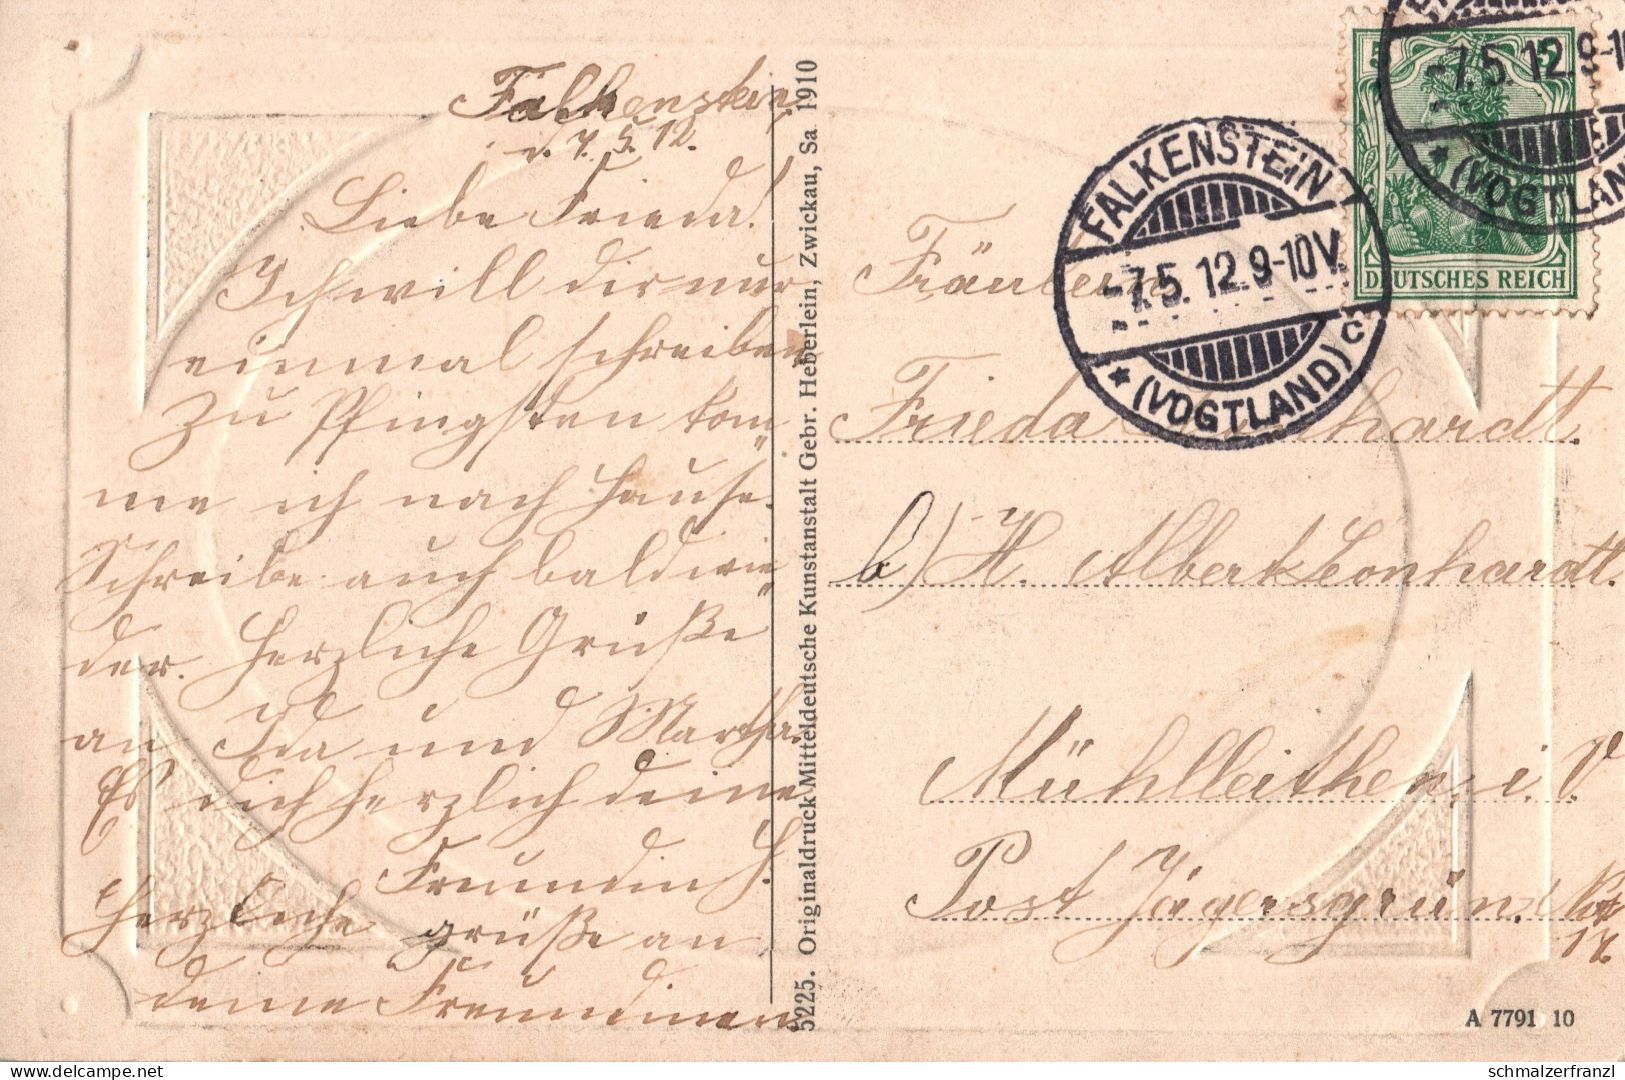 Falkenstein,
d. 7. 5. 12.
Liebe Frieda!
Ich will dir nur
einmal schreiben
Zu Pfingsten kom-
me ich nach Hause.
Schreibe auch bald wie-
der. Herzliche Grüße
an Ida und Martha.
Es dich herzlich deine
Freundin H.
Herzliche grüße an
deine Freundinen
5225. Originaldruck Mitteldeutsche Kunstanstalt Gebr. Heberlein, Zwickau, Sa 1910
FALKENSTEIN
-7.5.12.9-10V.
* (VOGTLAND) c
5 5
-7.5.12.9-10
* (VOGTLAND
DEUTSCHES REICH
Fräulein
Frieda Leonhardt.
b) H. Albert Leonhardt.
Mühlleithen, i. V.
Post Jägersgrün.
17
A 7791 10
https://www.delcampe.net
schmalzerfranzl